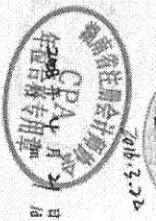 湖南省注册会计师协会
CPA
年检合格专用章
年 月 日
2016.3.22